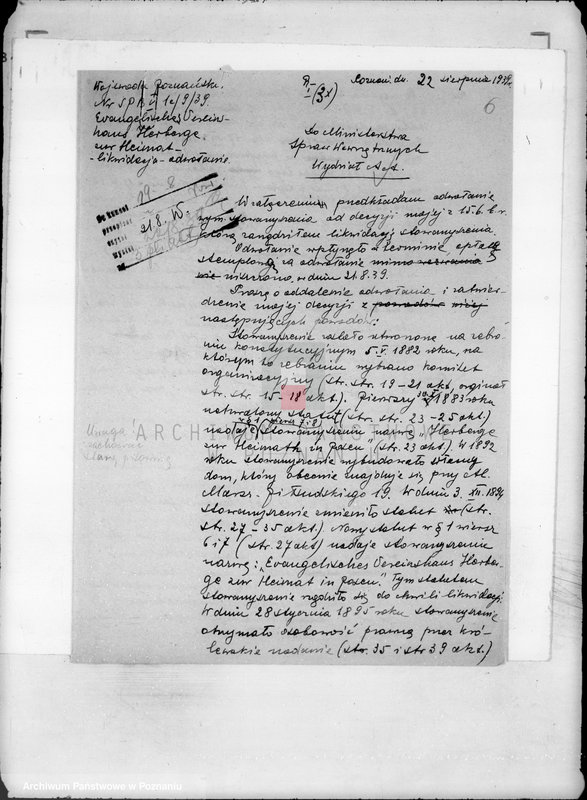 Wojewoda Poznański.
Nr SPB. I 1a/9/39.
Evangelisches Vereins-
haus Herberge
zur Heimat –
- likwidacja - odwołanie.
Poznań, dn. 22 sierpnia 1939 r.
6
Do Ministerstwa
Spraw Wewnętrznych
Wydział
19 - 8
21.8. W.
W załączeniu przedkładam odwołanie
wym. stowarzyszenia od decyzji mojej z 15.6. b.r.
którą zarządziłem likwidację stowarzyszenia.
Odwołanie wpłynęło w terminie, opłatę
stemplową za odwołanie
uiszczono w dniu 21.8.39.
Proszę o oddalenie odwołania i zatwier-
dzenie mojej decyzji z powodów niżej
następujących powodów:
Stowarzyszenie zostało utworzone na zebra-
niu konstytucyjnym 5.V. 1882 roku, na
którym to zebraniu wybrano komitet
organizacyjny (str. str. 19 - 21 akt, oryginał
str. str. 15 - 18 akt). Pierwszy 1883 roku
uchwalony statut (str. str. 23 - 25 akt)
nadaje stowarzyszeniu nazwę „Herberge
zur Heimath in Posen" (str. 23 akt). W 1892
roku stowarzyszenie wybudowało własny
dom, który obecnie znajduje się przy Al.
Marsz. Piłsudskiego 19. W dniu 3. XII. 1894
stowarzyszenie zmieniło statut (str.
str. 27 - 35 akt). Nowy statut w § 1 wiersz
6 i 7 (str. 27 akt) nadaje stowarzyszeniu
nazwę: „Evangelisches Vereinshaus Herber-
ge zur Heimat in Posen". Tym statutem
stowarzyszenie rządziło się do chwili likwidacji.
W dniu 28 stycznia 1895 roku stowarzyszenie
otrzymało osobowość prawną przez kró-
lewskie nadanie (str. 35 i str 39 akt.)
Uwaga!
zachować
starą pisownię
Archiwum Państwowe w Poznaniu